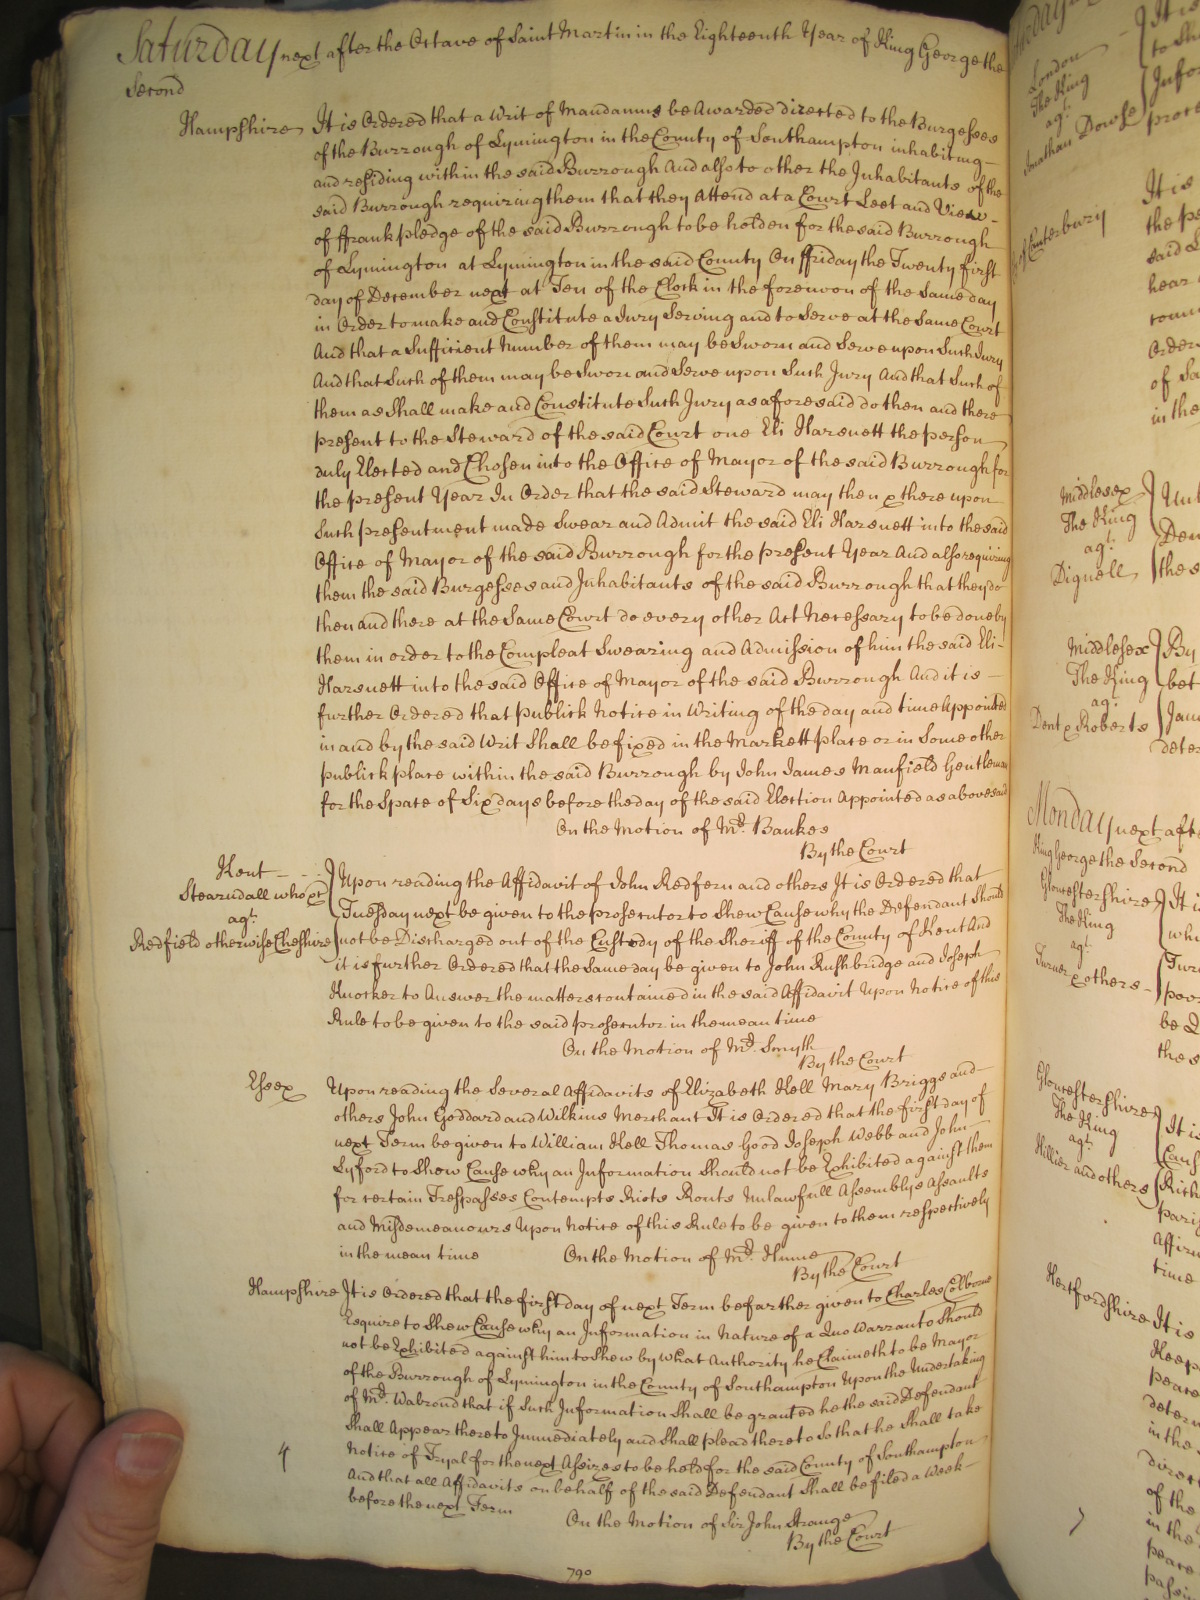 Saturday next after the Octave of Saint Martin in the Eighteenth Year of King George the
Second
Hampshire It is Ordered that a Writ of Mandamus be Awarded directed to the Burgesses
of the Burrough of Lymington in the County of Southampton inhabiting
and residing within the said Burrough And also to other the Inhabitants of the
said Burrough requiring them that they Attend at a Court Leet and View
of ffrankpledge of the said Burrough to be holden for the said Burrough
of Lymington at Lymington in the said County On ffriday the Twenty first
day of December next at Ten of the Clock in the forenoon of the same day
in Order to make and Constitute a Jury Serving and to Serve at the same Court
And that a Sufficient Number of them may be Sworn and Serve upon Such Jury
And that Such of them may be Sworn and Serve upon Such Jury And that Such of
them as Shall make and Constitute Such Jury as aforesaid do then and there
present to the Steward of the said Court one Eli Harsnett the person
duly Elected and Chosen into the Office of Mayor of the said Burrough for
the present Year In Order that the said Steward may then & there upon
Such presentment made Swear and Admit the said Eli Harsnett into the said
Office of Mayor of the said Burrough for the present Year And also requiring
them the said Burgesses and Inhabitants of the said Burrough that they do
then and there at the Same Court do every other Act Necessary to be done by
them in order to the Compleat Swearing and Admission of him the said Eli
Harsnett into the said Office of Mayor of the said Burrough And it is
further Ordered that publick Notice in Writing of the day and time Appointed
in and by the said Writ Shall be fixed in the Markett place or in Some other
publick place within the said Burrough by John James Manfield Gentleman
for the Space of Six days before the day of the said Election Appointed as abovesaid
On the Motion of Mr. Bankes
By the Court
Kent
Stearndall who &c
agt.
Redfield otherwise Cheshire
Upon reading the Affidavit of John Redfern and others It is Ordered that
Tuesday next be given to the prosecutor to Shew Cause why the Defendant Should
not be Discharged out of the Custody of the Sheriff of the County of Kent And
it is further Ordered that the Same day be given to John Rushbridge and Joseph
Knocker to Answer the matters contained in the said Affidavit Upon Notice of this
Rule to be given to the said prosecutor in the mean time
On the Motion of Mr. Smyth
By the Court
Essex Upon reading the Several Affidavits of Elizabeth Kell Mary Briggs and
others John Goddard and Wilkins Merchant It is Ordered that the first day of
next Term be given to William Kell Thomas Good Joseph Webb and John
Lyford to Shew Cause why an Information Should not be Exhibited against them
for certain Trespasses Contempts Riots Routs Unlawfull Assemblys Assaults
and Misdemeanours Upon Notice of this Rule to be given to them respectively
in the mean time On the Motion of Mr. Hume
By the Court
Hampshire It is Ordered that the first day of next Term be farther given to Charles Colborne
Esquire to Shew Cause why an Information in Nature of a Quo Warranto Should
not be Exhibited against him to Shew by what Authority he Claimeth to be Mayor
of the Burrough of Lymington in the County of Southampton Upon the Undertaking
of Mr. Walrond that if Such Information Shall be granted he the said Defendant
Shall Appear thereto Immediately and Shall plead thereto So that he Shall take
Notice of Tryal for the next Assizes to be held for the said County of Southampton
And that all Affidavits on behalf of the said Defendant Shall be filed a Week
before the next Term
On the Motion of Sir John Strange
By the Court
790
London
The King
agt.
Jonathan Dowse
of Canterbury
Middlesex
The King
agt.
Dignell
Middlesex
The King
agt.
Dent & Roberts
Monday next
King George the Second
Gloucestershire
The King
agt.
Turner & others
Gloucestershire
The King
agt.
Hillier and others
Hertfordshire It is